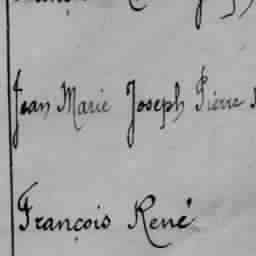 Jean Marie Joseph Pierre
François René